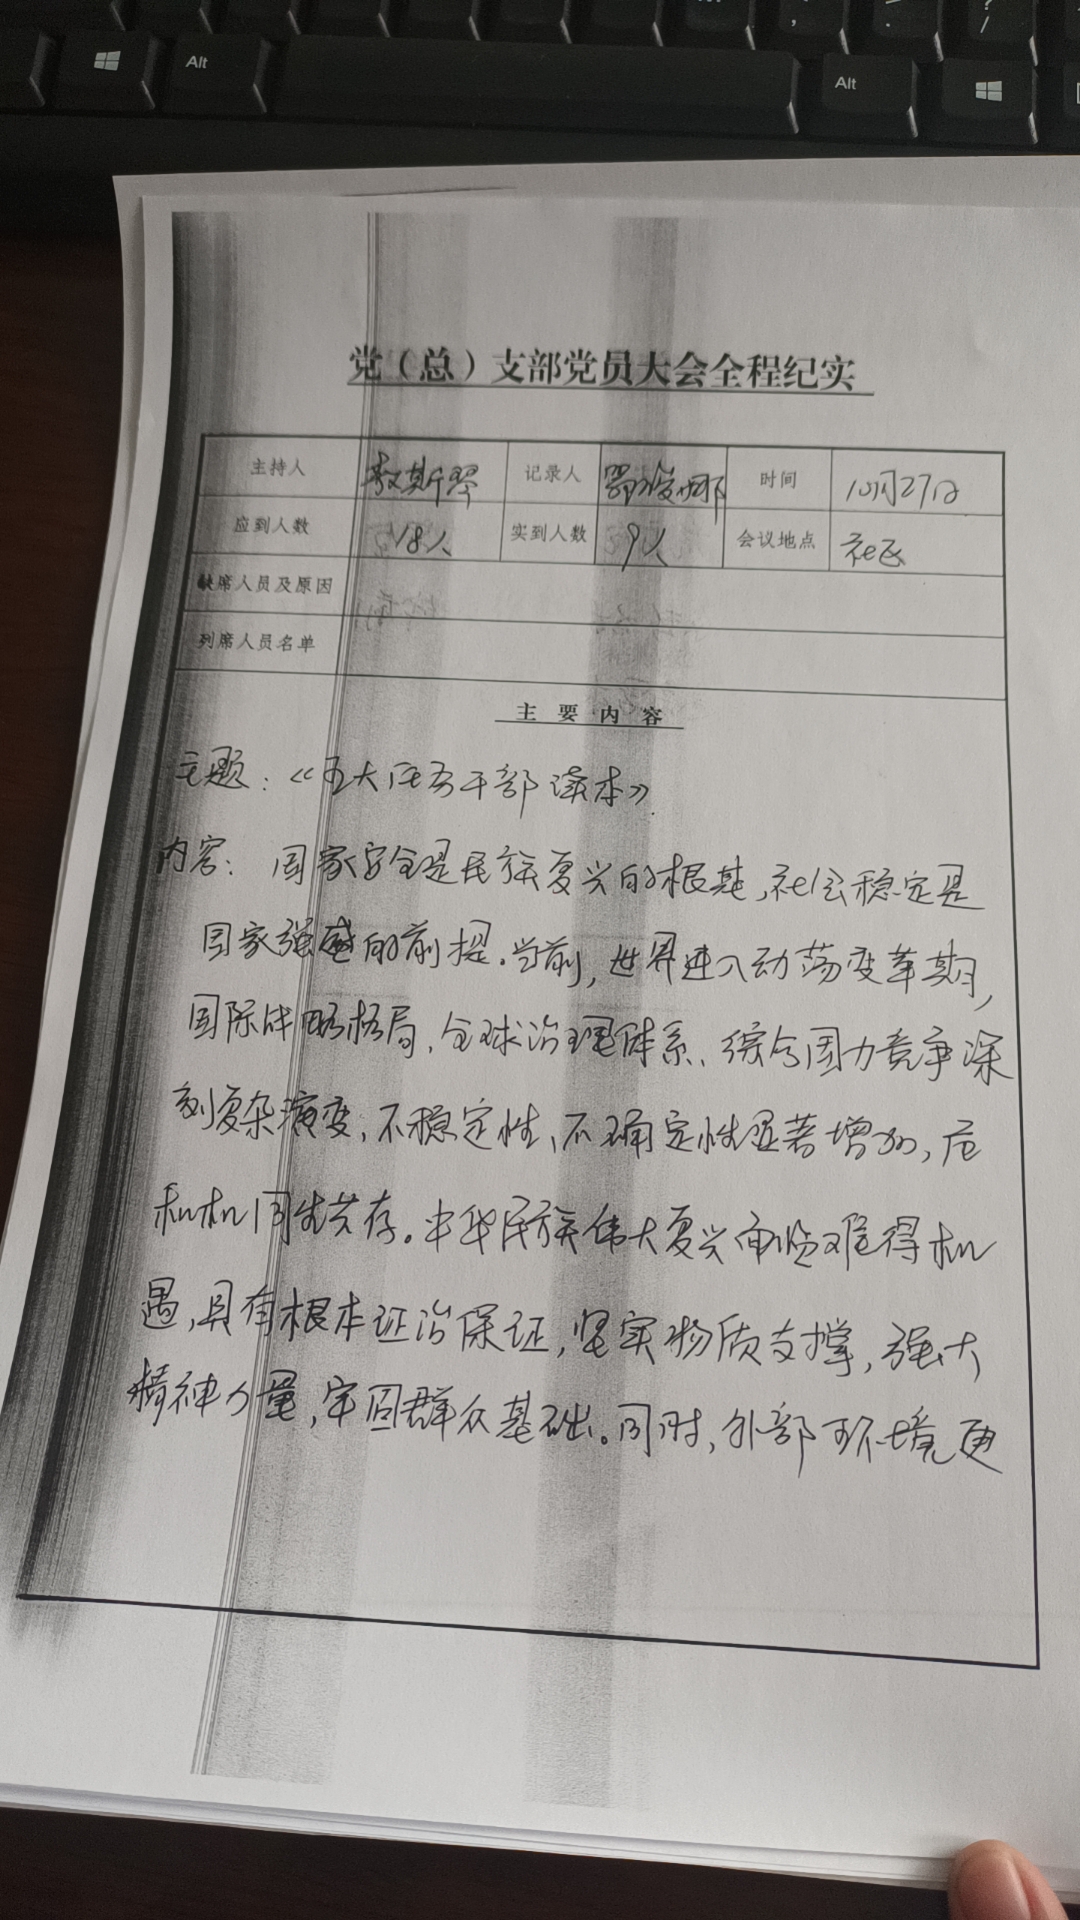 Alt
Alt
党（总）支部党员大会全程纪实
主持人 敖斯琴 记录人 时间 10月27日
应到人数 18人 实到人数 9人 会议地点 社区
缺席人员及原因
列席人员名单
主要内容
主题：《五大任务干部读本》
内容：国家安全是民族复兴的根基，社会稳定是
国家强盛的前提。当前，世界进入动荡变革期，
国际战略格局、全球治理体系、综合国力竞争深
刻复杂演变，不稳定性、不确定性显著增加，危
机机同生共存。中华民族伟大复兴面临难得机
遇，具有根本证治保证，坚实物质支撑，强大
精神力量，牢固群众基础。同时，外部环境更